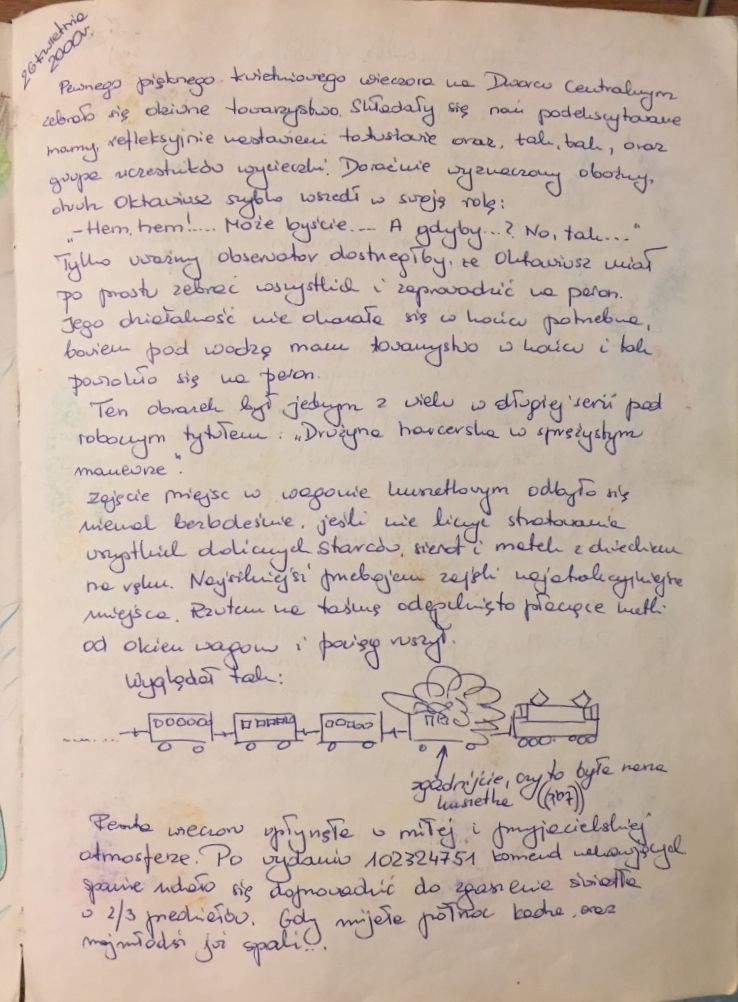 26 kwietnia
2000r.
Pewnego pięknego kwietniowego wieczora na Dworcu Centralnym
zebrało się dziwne towarzystwo. Składały się nań podekscytowane
mamy, refleksyjnie nastawieni tatusiowie oraz, tak, tak, oraz
grupa uczestników wycieczki. Doraźnie wyznaczony oboźny,
druh Oktawiusz szybko wszedł w swoją rolę:
"-Hem, hem!.... Może byście.... A gdyby...? No, tak..."
Tylko uważny obserwator dostrzegłby, że Oktawiusz miał
po prostu zebrać wszystkich i zaprowadzić na peron.
Jego działalność nie okazała się w końcu potrzebna,
bowiem pod wodzą mam towarzystwo w końcu i tak
powlokło się na peron.
Ten obrazek był jednym z wielu w długiej serii pod
roboczym tytułem: „Drużyna harcerska w sprężystym
manewrze".
Zajęcie miejsc w wagonie kuszetkowym odbyło się
niemal bezboleśnie, jeśli nie liczyć stratowania
wszystkich okolicznych starców, sierot i matek z dzieckiem
na ręku. Najsilniejsi przebojem zajęli najatrakcyjniejsze
miejsca. Rzutem na taśmę odepchnięto płaczące matki
od okien wagonu i pociąg ruszył.
Wyglądał tak:
zgadnijcie, czy to była nasza
kuszetka
Reszta wieczoru upłynęła w miłej i przyjacielskiej
atmosferze. Po wydaniu 102324751 komend nakazujących
spanie udało się doprowadzić do zgaszenia światła
w 2/3 przedziałów. Gdy mijała północ kadra, oraz
najmłodsi już spali...